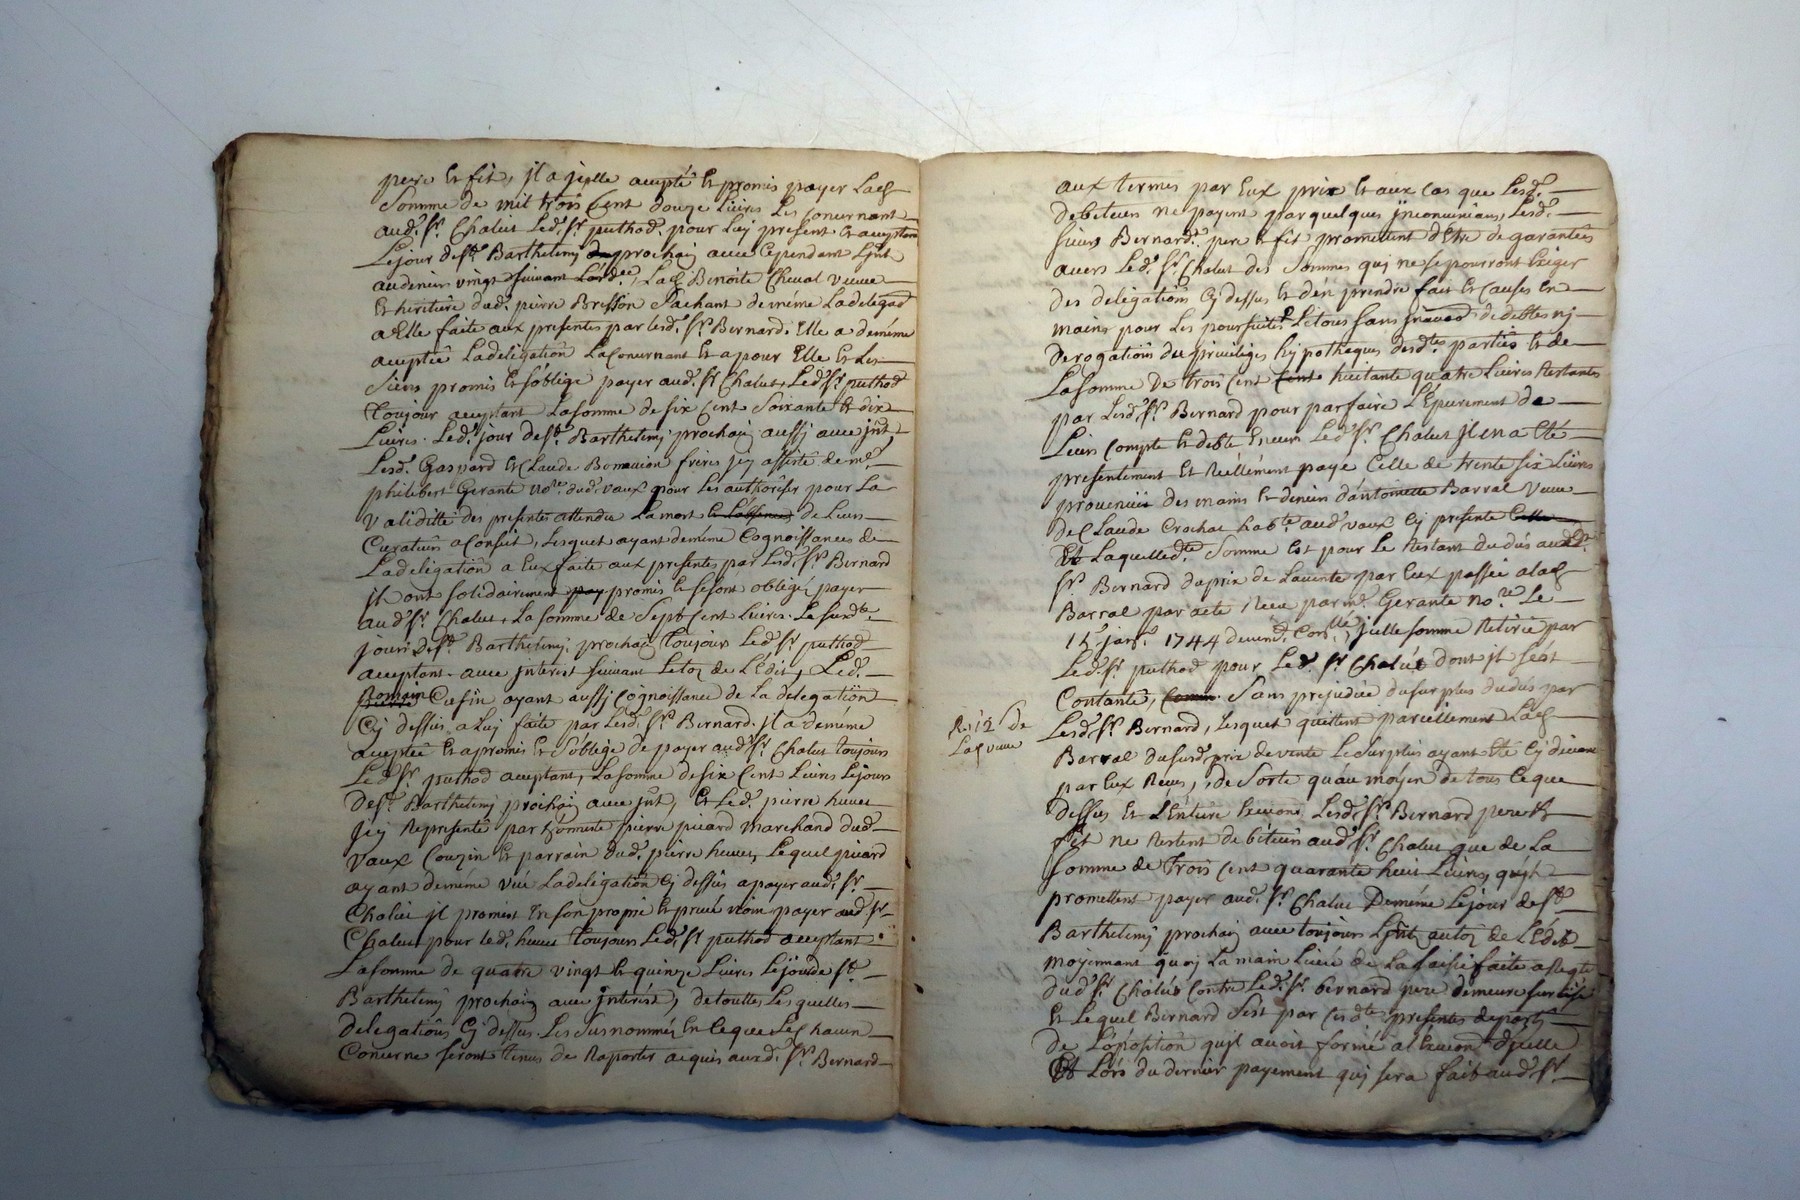 pere et fils, jl a jcelle accepté et promis payer Lad.
Somme de mil trois Cent douze Livres Les Concernant
aud. Sr. Chalut Led. Sr. puthod pour luy present et acceptant
Lejour de St. Barthelemy prochaij avec Cependant Jnt.
audenier vingt suivant Lord.ce, Lad. Benoite Cheval veuve
Et heritiere dud. pierre Brisson Sachant deméme Ladelegaõn
a Elle faite aux presentes par lesd. Srs. Bernard. Elle a deméme
acceptée Ladelegation Laconcernant Et a pour Elle Et Les
Siens promis Et s'oblige payer aud. Sr. Chalut, Led. Sr. puthod
Toujour acceptant Lasomme de six Cent Soixante Et dix
Livres. Led. jour de St. Barthelemj prochaij aussj avec jnt,
Lesd. Gaspard Et Claude Bonnevion freres jcy assisté de me.
philibert Gerante no.re dud. vaux pour Les authoriser pour La
Validitté des presentes attendu La mort et L'absence de Leurs
Curateurs aConseil, Lesquels ayant deméme Cognoissances de
Ladelégation a Eux faite aux presentes par Lesd. Srs. Bernard
jls ont solidairement pay promis Et se sont obligés payer
aud. Sr. Chalut, La somme de Sept Cent Livres. Le susd.
jour de St. Barthelemj prochaij Toujour Led. Sr. puthod
acceptant avec jnterest suivant Letaz de L'Edit, Led.
Romain Cufin ayant aussj Cognoissance de La delegation
Cy dessus a Luy faite par Lesd. Srs. Bernard. jl a deméme
acceptée Et apromis Et s'oblige de payer aud. Sr. Chalut toujours
Led. Sr. puthod acceptant, La somme desix Cent Livres Lejour
de St. Barthelemj prochaij avec jnt, Et Led. pierre huves
jcy Representé par honneste pierre picard marchand dud.
Vaux Couzin Et parrain dud. pierre huves, Lequel picard
ayant deméme vüe Ladelegation Cy dessus apayer aud. Sr.
Chalut jl promest En son propre Et privé nom payer aud. Sr.
Chalut pour led. huves Toujours Led. Sr. puthod acceptant
La somme de quatre vingt Et quinze Livres Lejour de St.
Barthelemj prochaij avec jnterést, detouttes Lesquelles
delegations Cy dessus Les Susnommés En Ceque Les Chacun
Concerne seront tenus de Raporter acquis auxd. Srs. Bernard
aux termes par Eux prix Et aux Cas que Lesd.
debiteurs ne payent par quelques jnconvenians, Lesd.
sieurs Bernard. pere Et fils promettent d'Etre de garanties
avers Led. Sr. Chalut des Sommes quj ne se pourront Exiger
des delegations Cy dessus Et d'en prendre fait Et Causes En
mains pour Les poursuites Letous sans de debtes nj
Derogations du privileges hypotheques desd.tes parties Et de
Lasomme De trois Cent Cents huitante quatre Livres Restantes
par Lesd. Srs. Bernard pour parfaire L'Epurement de
Leurs Compte Et debte Envers Led. Sr. Chalut jl en a Eté
presentement Et Réellement payé Celle de trente six Livres
provenüe des mains Et deniers d'antoinette Barral Veuve
de Claude Crochat hab.te aud. vaux Cy presente
Et Laquelled.te Somme Est pour Le Restant du dûs auxd.
Srs. Bernard duprix de Lavente par Eux passée alad.
Barral par acte Recu par me. Gerante no.re Le
12 janr. 1744 jcelle somme Retirée par
Led. Sr. puthod pour Led. Sr. Chalut dont jl s'est
Contanté, Sans prejudice dusurplus dudûs par
Lesd. Srs. Bernard, Lesquels quittent pareillement Lad.
Barral dususd. prix devente Lesurplus ayant Eté Cy devant
par Eux Recus, de Sorte qu'au moyen detous Ceque
dessus Et Lesd. Srs. Bernard pere Et
fils ne Restent debiteurs aud. Sr. Chalut que de La
somme de Trois Cent quarante huit Livres, qu'jls
promettent payer aud. Sr. Chalut Deméme Lejour de St.
Barthelemj prochaij avec toujours L'jnt, autaz de L'Edit
moyennant quoy La main Levée de La saisie faite aReqte
dud. Sr. Chalut Contre Led. Sr. Bernard pere demeure
Et Lequel Bernard S'est par Cesd.tes presentes deparți
de L'oposition qu'jl avoit formé a d'jcelle
Et Lors du dernier payement quj sera fait aud. Sr.